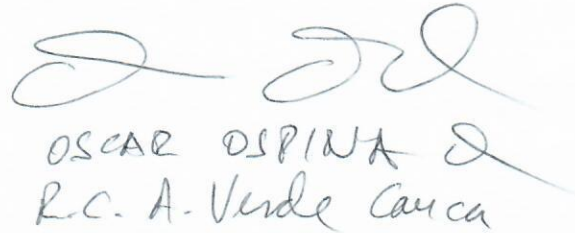 OSCAR OSPINA Q
R.C. A. Verde Cauca